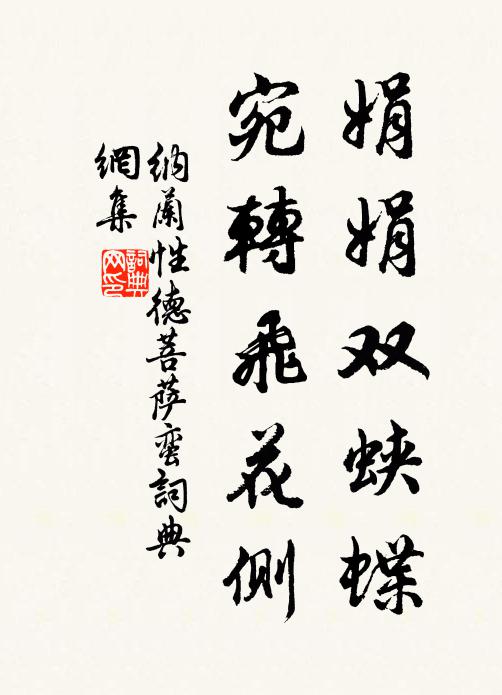 娟娟双蛱蝶
宛轉飛花側
納蘭性德菩萨蛮詞典
網集
詞典
网印